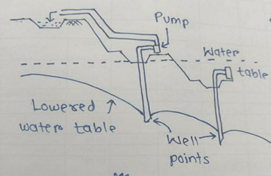 Pump
Water
table
Lowered
water table
Well
points